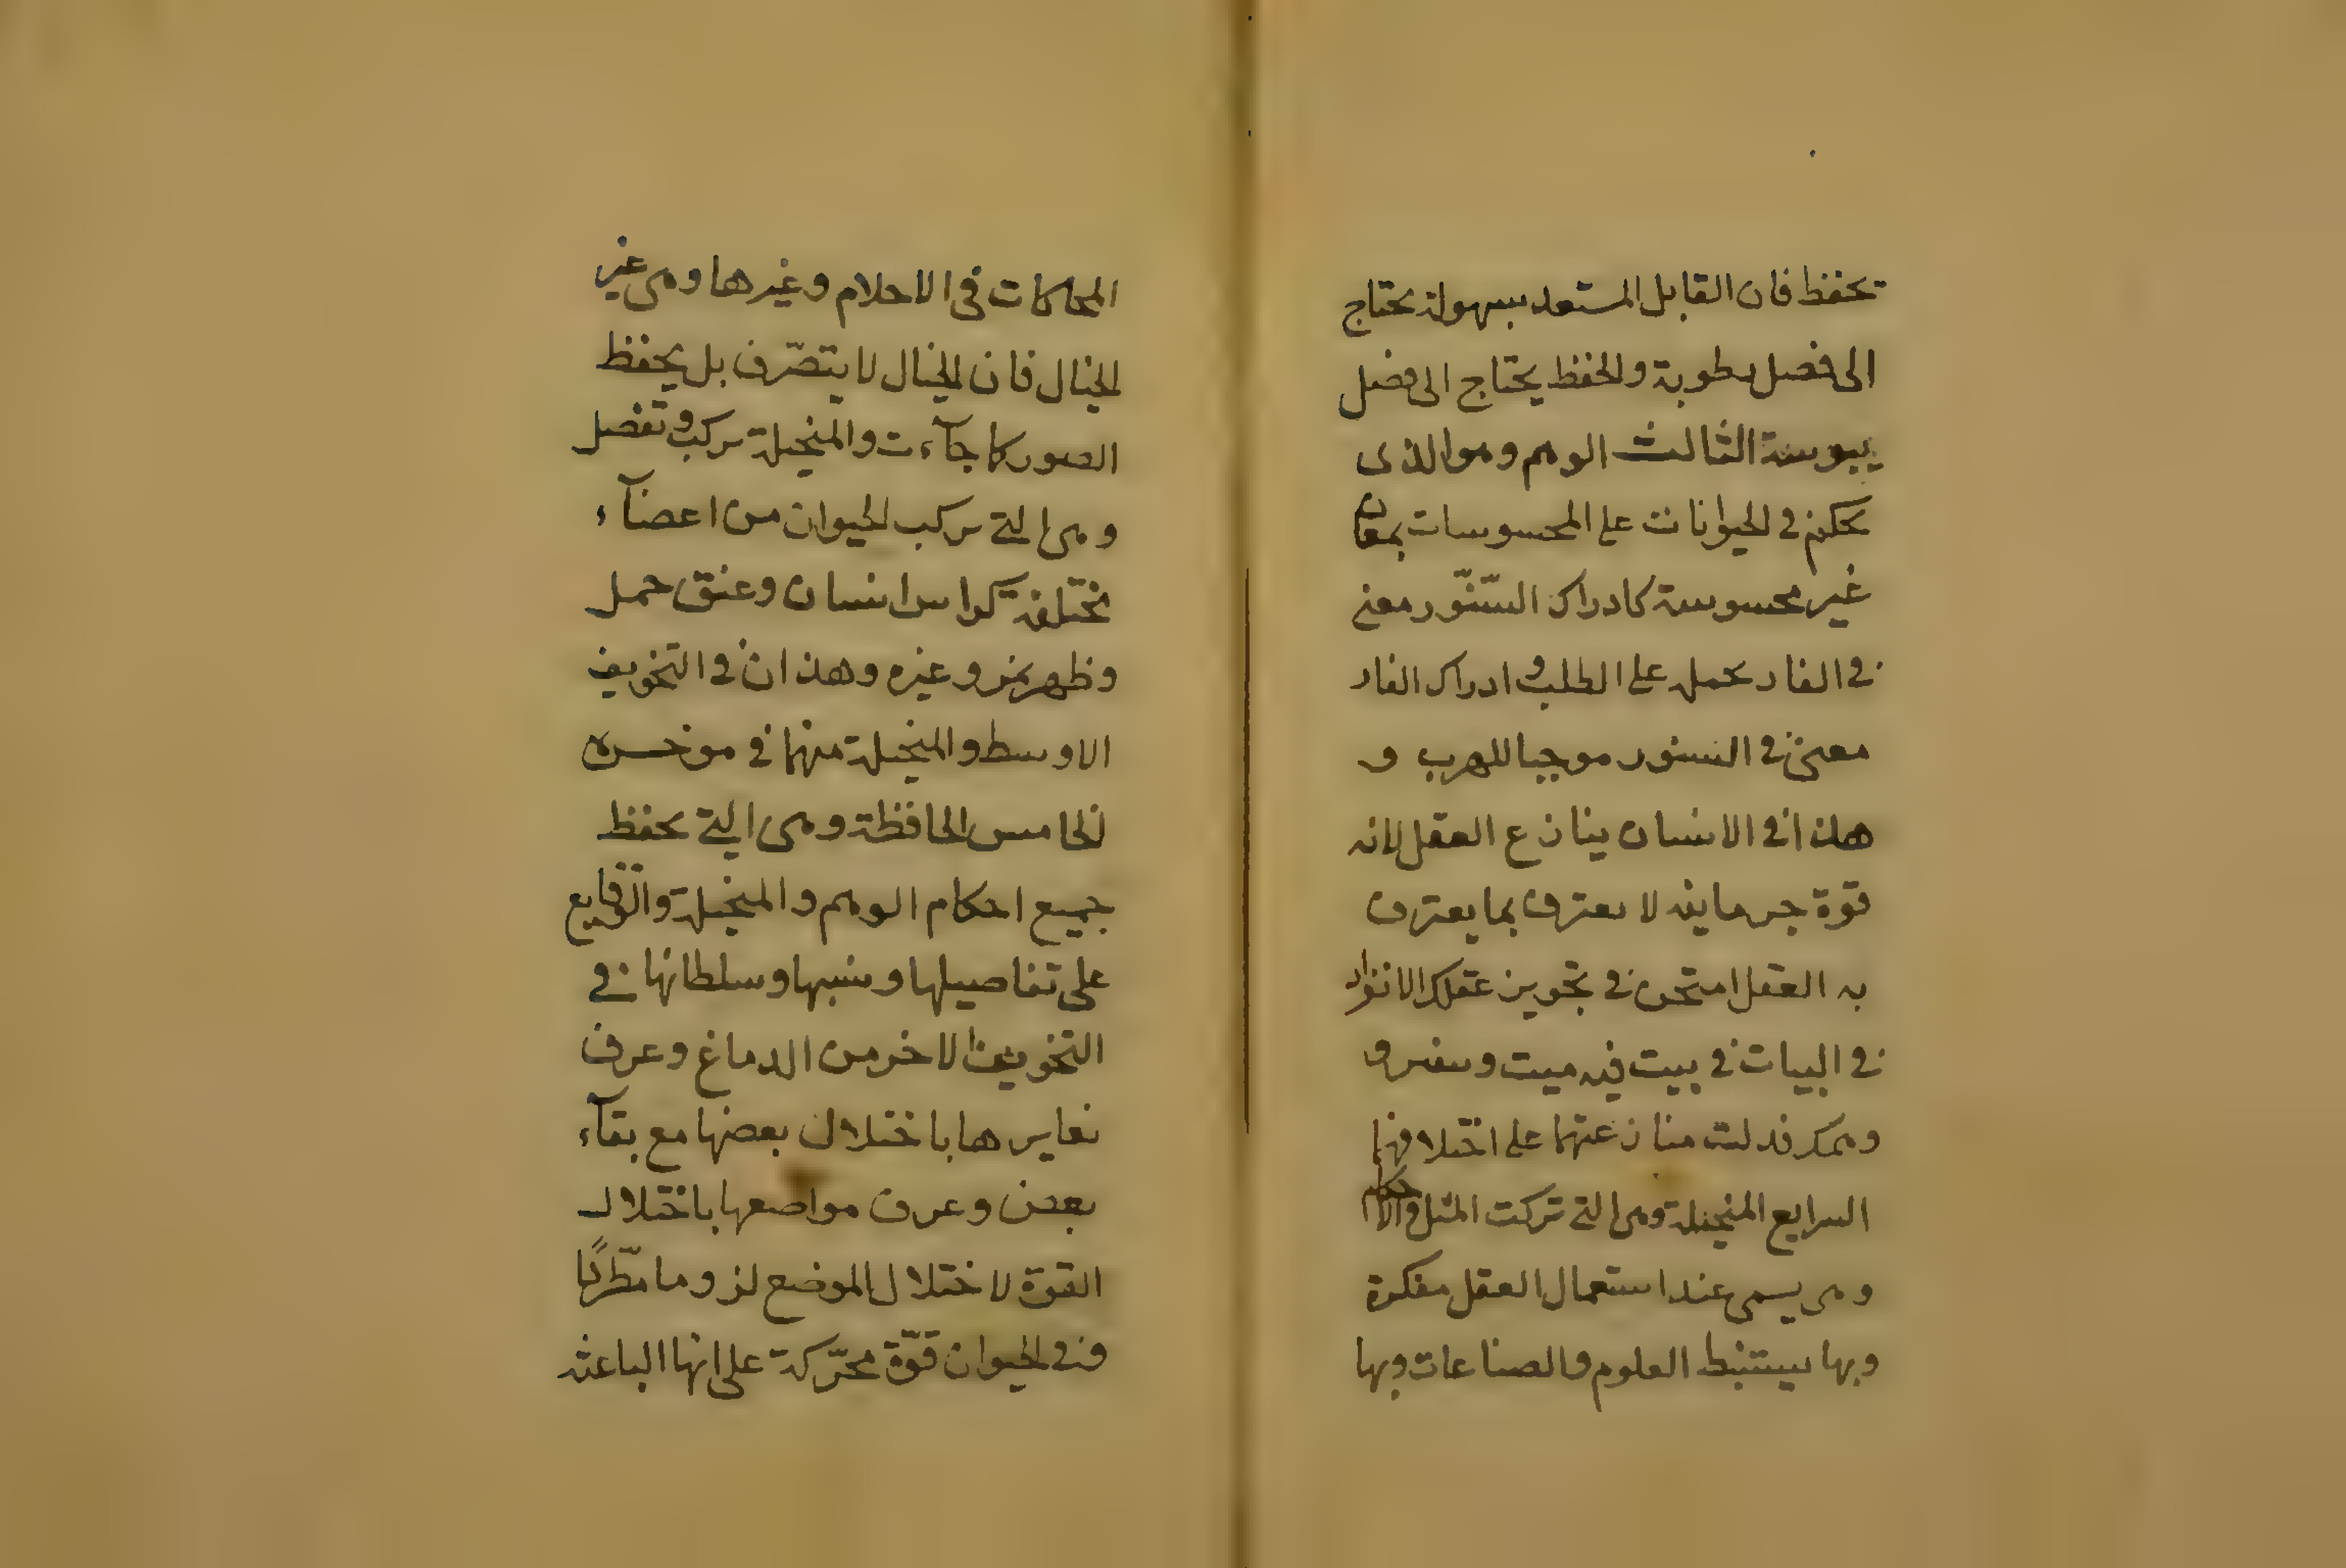 تحفظ فان القابل المستعد بسهولة يحتاج
الى فضل رطوبة والحفظ يحتاج الى فضل
يبوسة الثالث الوهم وهو الذى
يحكم فى الحيوانات على المحسوسات بمعان
غير محسوسة كادراك السنّور معنى
فى الفار يحمل على الطلب وادراك الفار
معنى فى السنور موجبا للهرب و
هذا فى الانسان ينازع العقل لانه
قوة جرمانية لا يعترف بما يعترف
به العقل امتحن فى تجويز عقلك الانفراد
فى البيات فى بيت فيه ميت و
وهمك فدلت منازعتهما على اختلافهما
الرابع المتخيلة وهى التى تركت المثل والاحكام
وهى يسمى عند استعمال العقل مفكرة
وبها يستنبط العلوم والصناعات وبها
المحاكات فى الاحلام وغيرها وهى غير
الخيال فان الخيال لا يتصّرف بل يحفظ
الصور كما جآءت والمتخيلة تركب وتفصل
وهى التى تركب الحيوان من اعضآء
مختلفة كراس انسان وعنق جمل
وظهر نمر وغيره وهذان فى التجويف
الاوسط والمتخيلة منهما فى موخره
الخامس الحافظة وهى التى يحفظ
جميع احكام الوهم والمتخيلة والوقايع
على تفاصيلها ونسبها وسلطانها فى
التجويف الاخر من الدماغ وعرف
تغايرها باختلال بعضها مع بقآء
بعض وعرف مواضعها باختلال
القوة لاختلال الموضع لزوما مطّردًا
وفى الحيوان قوّة محرّكة على انها الباعثه